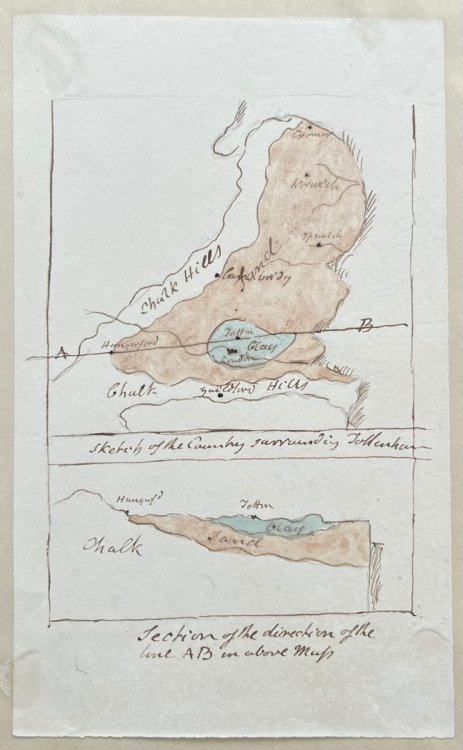 Cromer
Norwich
Ipswich
Sand
Cambridg
Chalk Hills
B
Tottm
Clay
London
A
Hungerford
Chalk Guildford Hills
Sketch of the Country surrounding Tottenham
Hungerfd
Tottm
Clay
Sand
Chalk
Section of the direction of the
line AB in above Map